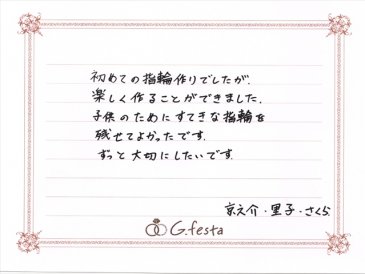 初めての指輪作りでしたが、
楽しく作ることができました。
子供のためにすてきな指輪を
残せてよかったです。
ずっと大切にしたいです。
京之介・里子・さくら
G.festa